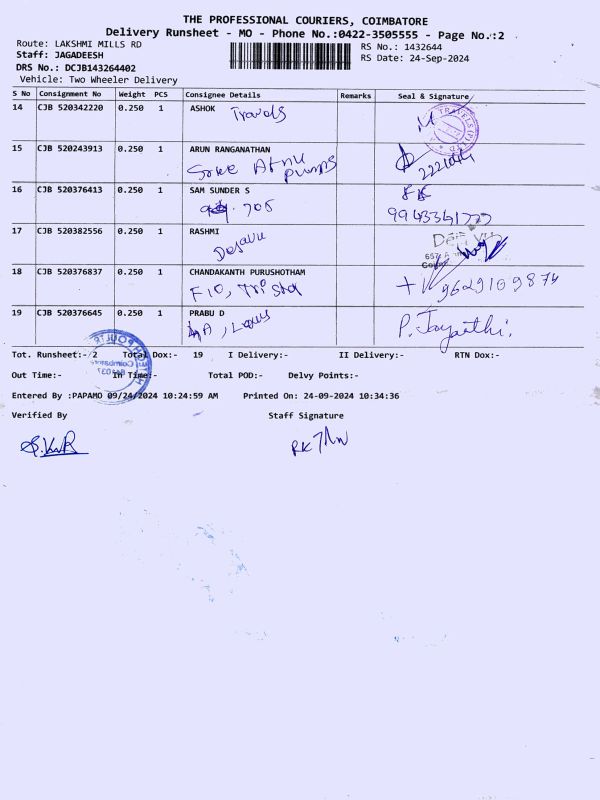 THE PROFESSIONAL COURIERS, COIMBATORE
Delivery Runsheet - MO - Phone No.:0422-3505555 - Page No.:2
Route: LAKSHMI MILLS RD
RS No.: 1432644
Staff: JAGADEESH
RS Date: 24-Sep-2024
DRS No.: DCJB143264402
Vehicle: Two Wheeler Delivery
S No Consignment No Weight PCS Consignee Details Remarks Seal & Signature
14 CJB 520342220 0.250 1 ASHOK
Travels
15 CJB 520243913 0.250 1 ARUN RANGANATHAN
pumps
16 CJB 520376413 0.250 1 SAM SUNDER S
705
9943341777
17 CJB 520382556 0.250 1 RASHMI
Dejavu
18 CJB 520376837 0.250 1 CHANDAKANTH PURUSHOTHAM
F10, Tristar
9629109874
19 CJB 520376645 0.250 1 PRABU D
4A, Lotus
P. Jayanthi.
Tot. Runsheet:- 2 Total Dox:- 19 I Delivery:- II Delivery:- RTN Dox:-
Out Time:- In Time:- Total POD:- Delvy Points:-
Entered By :PAPAMO 09/24/2024 10:24:59 AM Printed On: 24-09-2024 10:34:36
Verified By Staff Signature